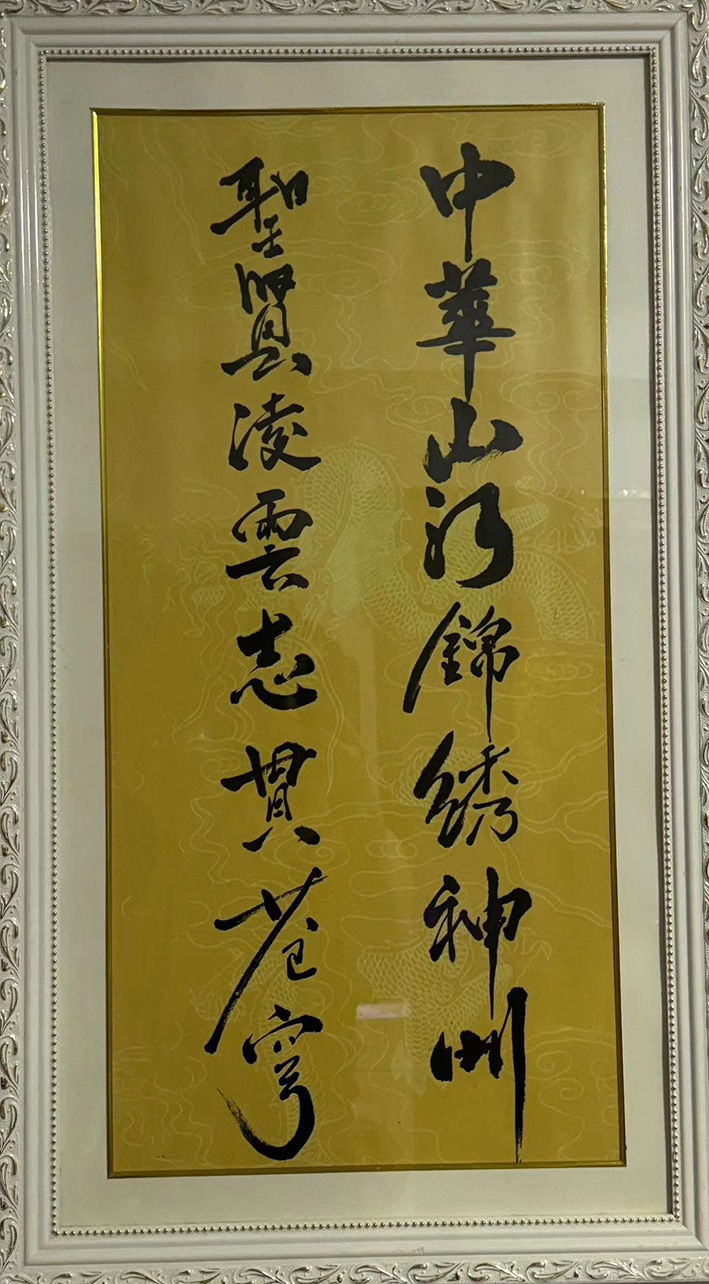 中華山河錦綉神州
聖賢凌雲志貫苍穹